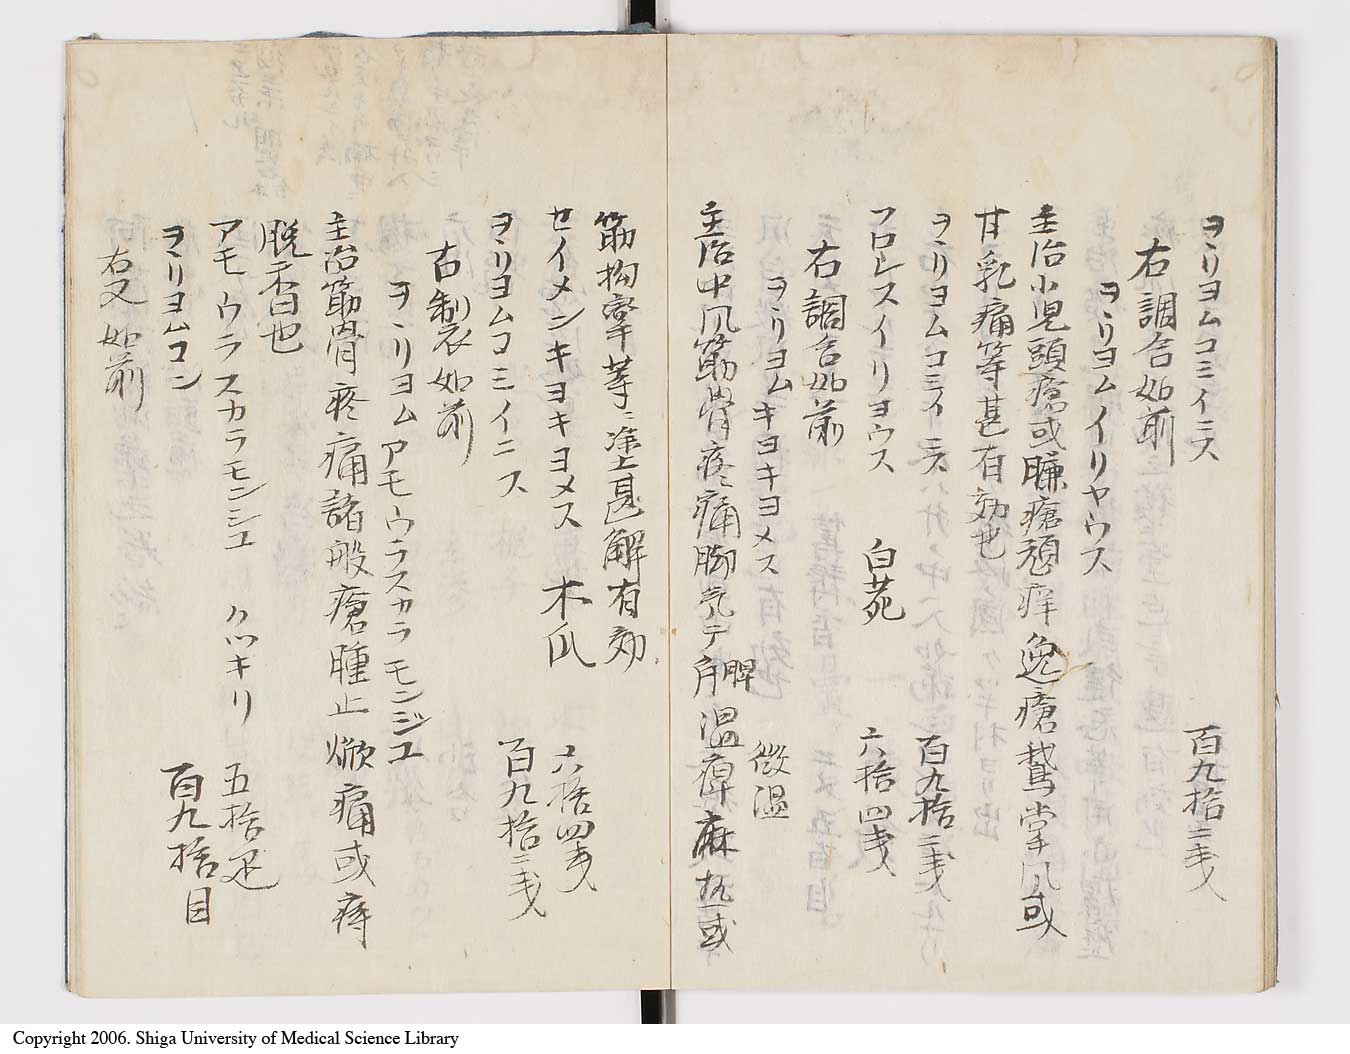 ヲヽリヨムコミイニス 百九拾二戔
右調合如前
ヲヽリヨムイリヤウス
主治小児頭瘡或臁瘡頑痒逸瘡鵞掌風或
甘乳痛等甚有効也
ヲヽリヨムコミイニス 百九拾二戔
フロレスイリヨウス 白苑 六拾四戔
右調合如前
ヲヽリヨムキヨキヨメス 微温
主治中風筋骨疼痛脚気テ
温痺麻 或
筋拘攣等ニ塗甚解有効
セイメンキヨキヨメス 木瓜 六拾四戔
ヲヽリヨムコミイニス 百九拾二戔
右制如前
ヲヽリヨムアモウラスカラモンジユ
主治筋骨疼痛諸般瘡腫止焮痛或痔
脱 也
アモウラスカラモンシユ クツキリ 五拾
ヲヽリヨムコン 百九拾目
右又如前
Copyright 2006. Shiga University of Medical Science Library